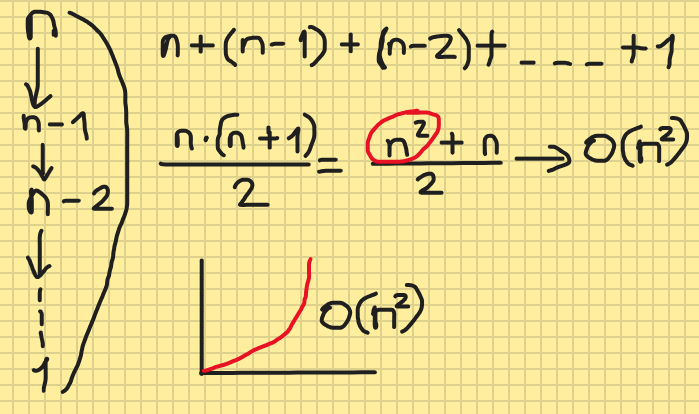 n
n-1
n-2
1
n+(n-1)+(n-2)+ --- +1
n·(n+1)/2 = n²+n/2 → O(n²)
O(n²)